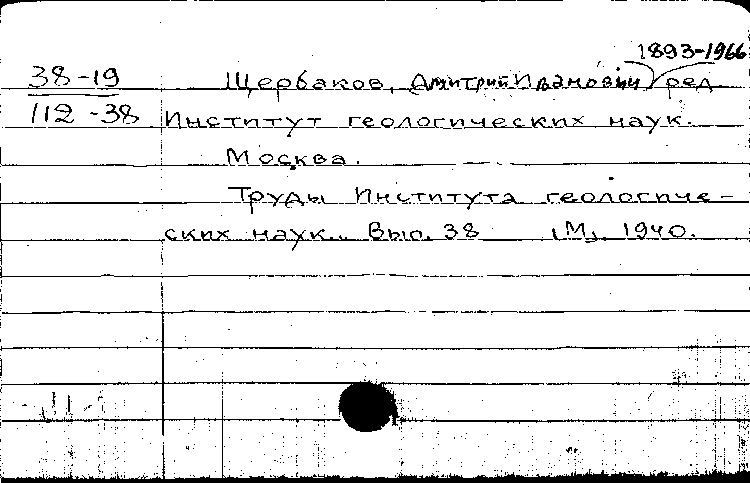 1893-1966
38-19 Щербаков, Дмитрий Иванович, ред
112-38 Институт геологических наук.
Москва.
Труды Института геологиче-
ских наук.. Вып. 38 М, 1940.